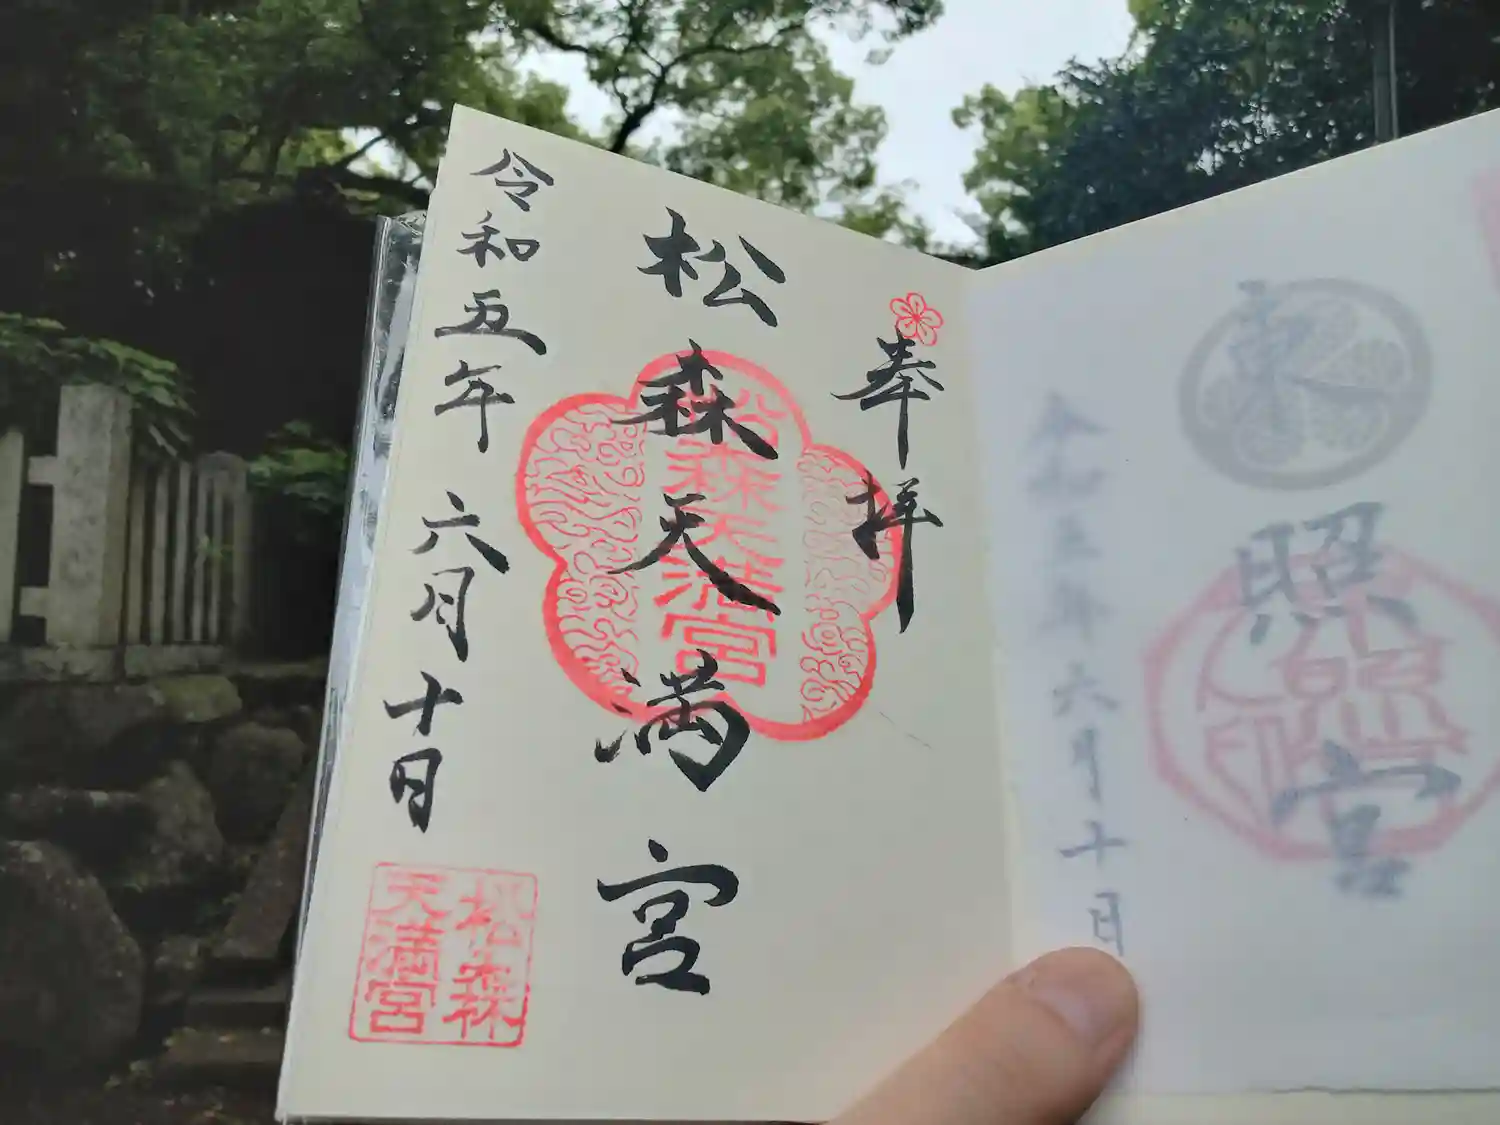 東照宮
令和五年六月十日
奉拝
松森天満宮
松森天満宮
令和五年六月十日
松森
天満宮